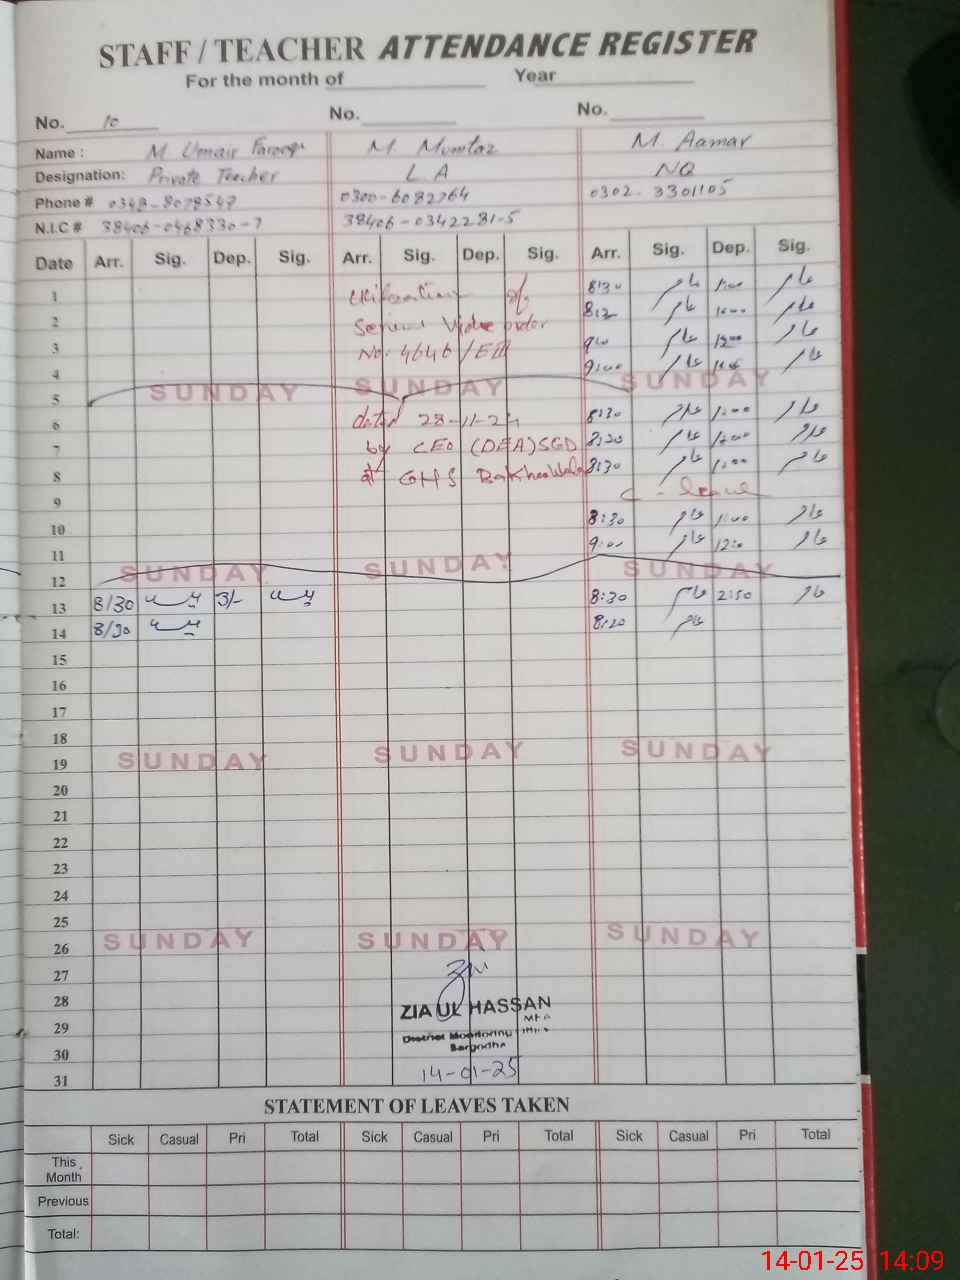 STAFF / TEACHER ATTENDANCE REGISTER
For the month of Year
No. 10 No. No.
Name : M Umair Farooq M. Mumtaz M. Aamar
Designation: Private Teacher L.A NQ
Phone # 0343-8079547 0300-6082764 0302-3301105
N.I.C # 38406-0468330-7 38406-0342281-5
Date Arr. Sig. Dep. Sig. Arr. Sig. Dep. Sig. Arr. Sig. Dep. Sig.
1 of 8:30 عامر عامر
2 عامر عامر
3 No. 4646/EIII 9:00 عامر 12:00 عامر
4 9:00 عامر عامر
5 SUNDAY SUNDAY SUNDAY
6 dated 28-11-24 8:30 عامر 1:00 عامر
7 by CEO (DEA) SGD 8:30 عامر عامر
8 at GHS 8:30 عامر 1:00 عامر
9 C - leave
10 8:30 عامر 1:00 عامر
11 9:00 عامر 12:0 عامر
12 SUNDAY SUNDAY SUNDAY
13 8/30 3/- 8:30 عامر 2:50 عامر
14 8/30 8:20 عامر
15
16
17
18
19 SUNDAY SUNDAY SUNDAY
20
21
22
23
24
25
26 SUNDAY SUNDAY SUNDAY
27
28
29
30
31
ZIA UL HASSAN
MEA
District Monitoring Office
Sargodha
14-01-25
STATEMENT OF LEAVES TAKEN
Sick Casual Pri Total Sick Casual Pri Total Sick Casual Pri Total
This Month
Previous
Total:
14-01-25 14:09